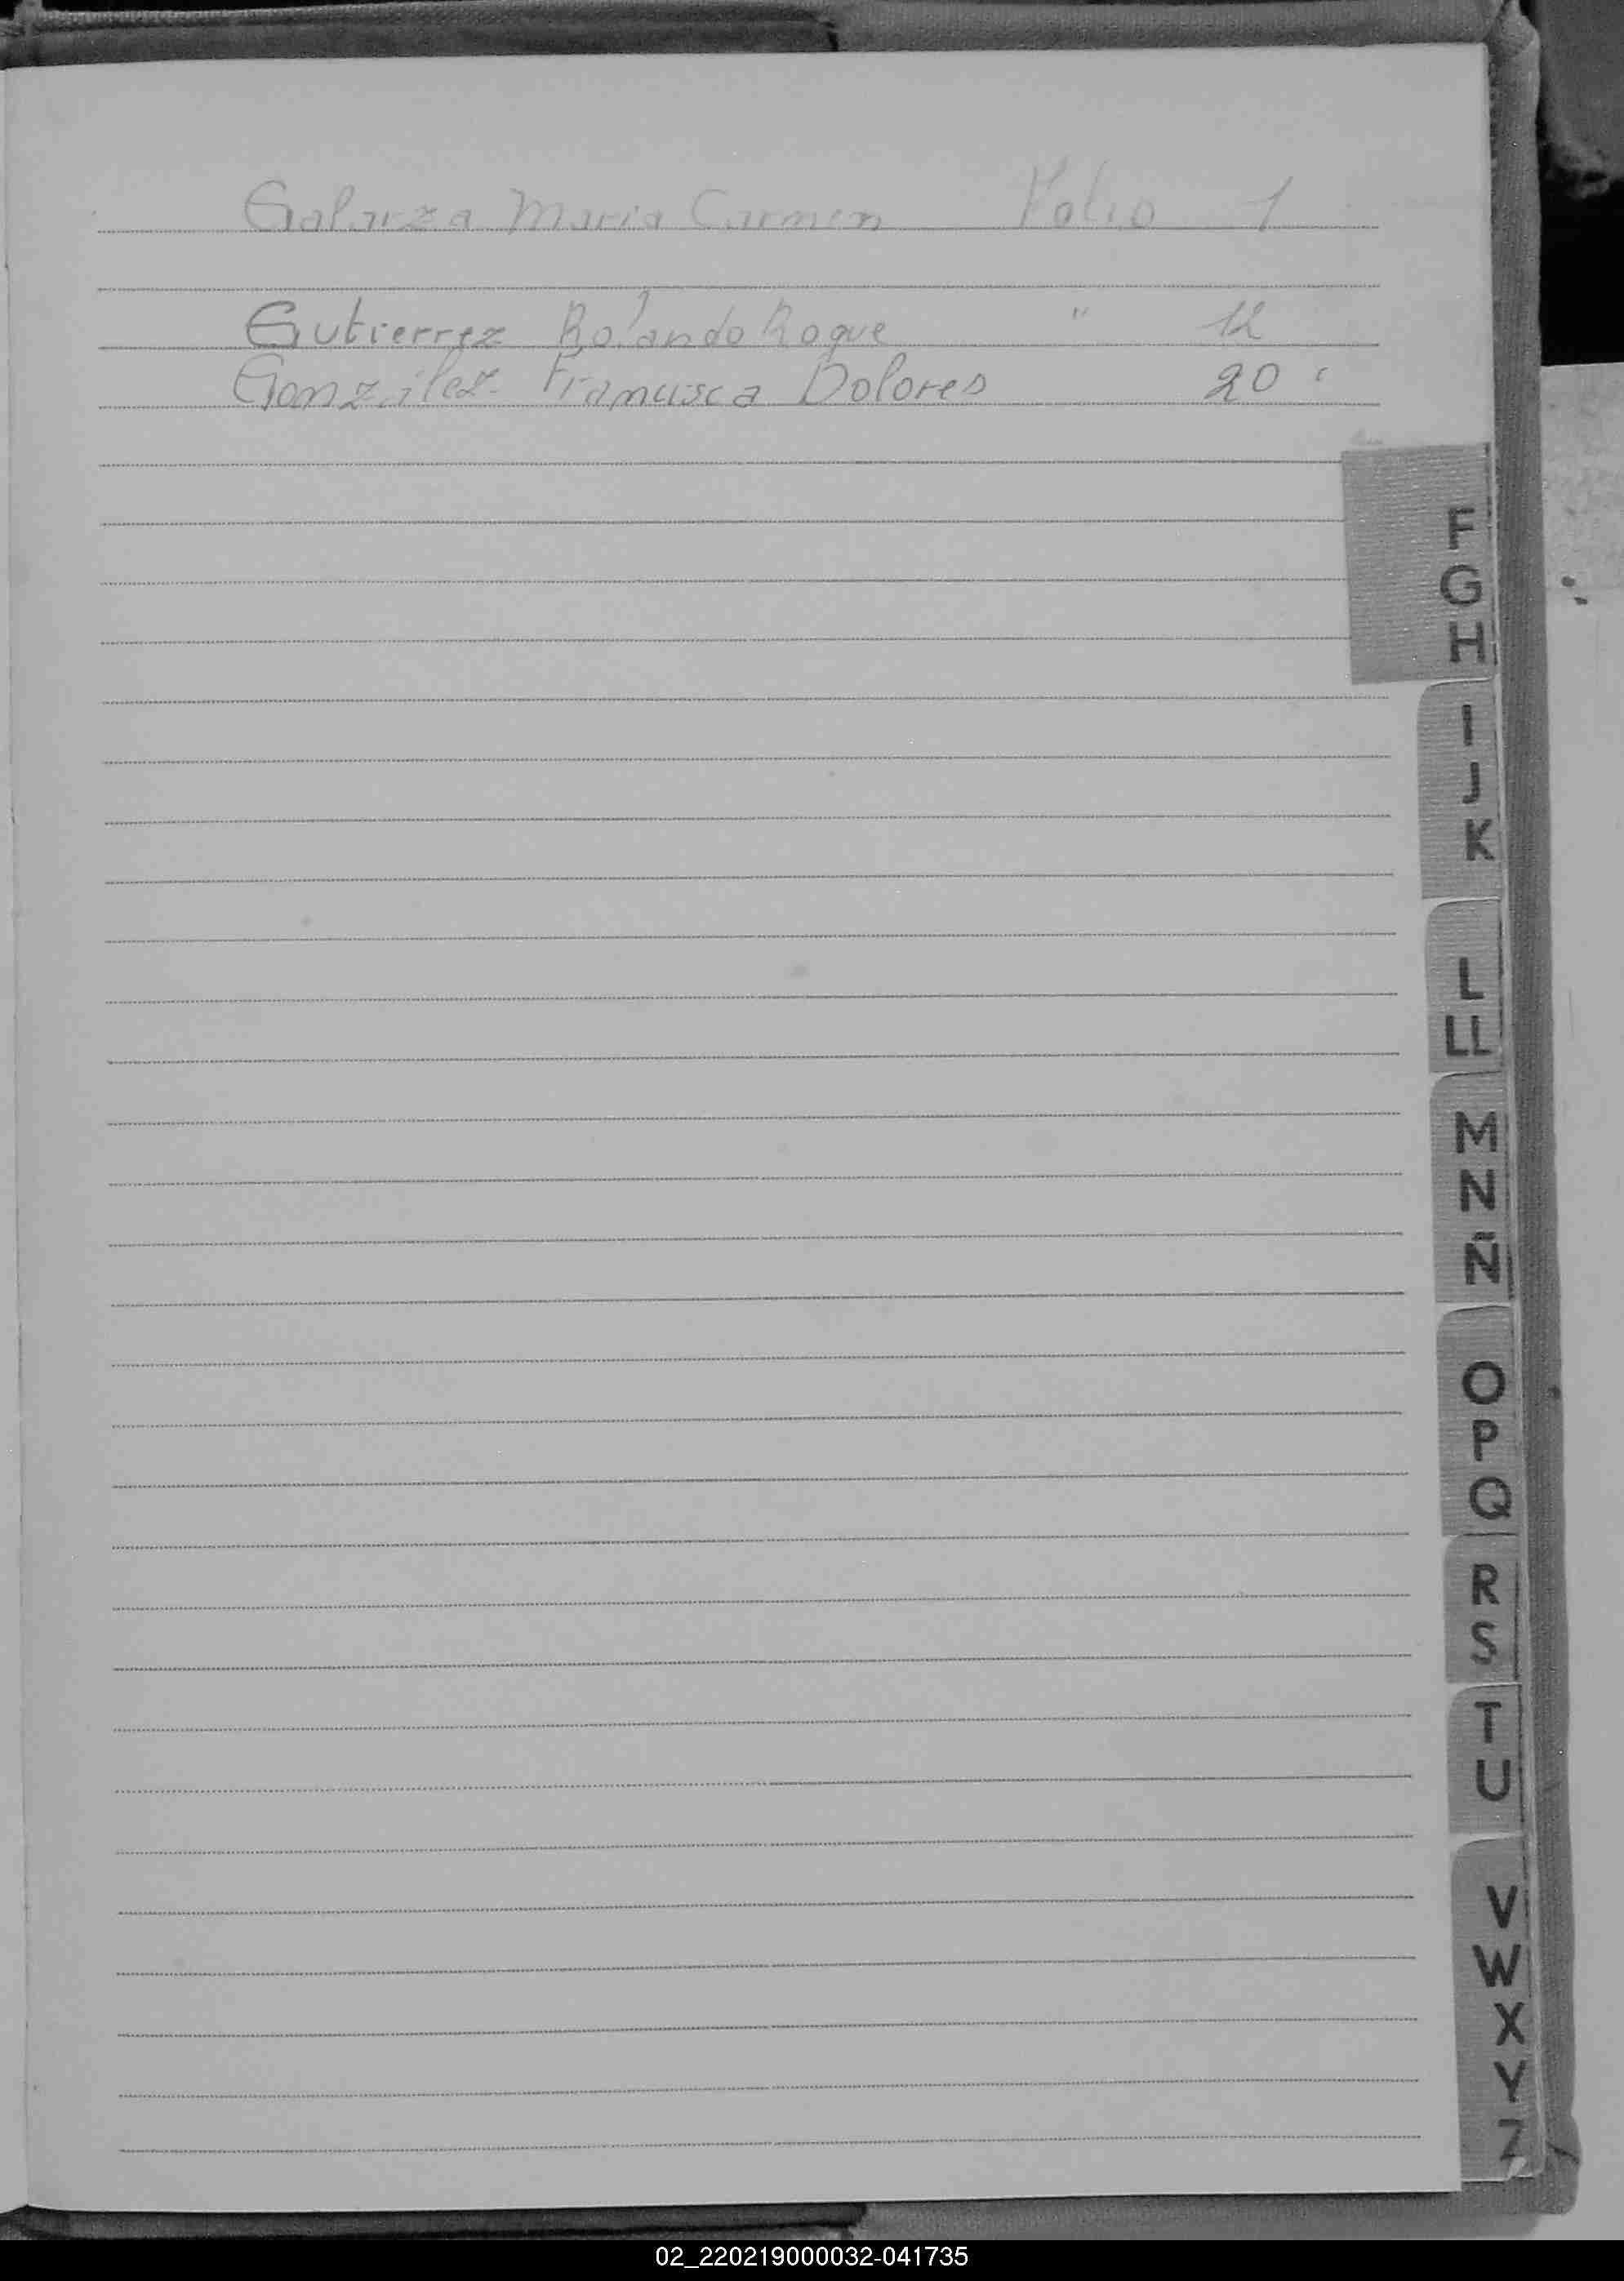 Galarza Maria Carmen Folio 1
Gutierrez Rolando Roque " 12
González Francisca Dolores 20
F
G
H
I
J
K
L
LL
M
N
Ñ
O
P
Q
R
S
T
U
V
W
X
Y
Z
02_220219000032-041735